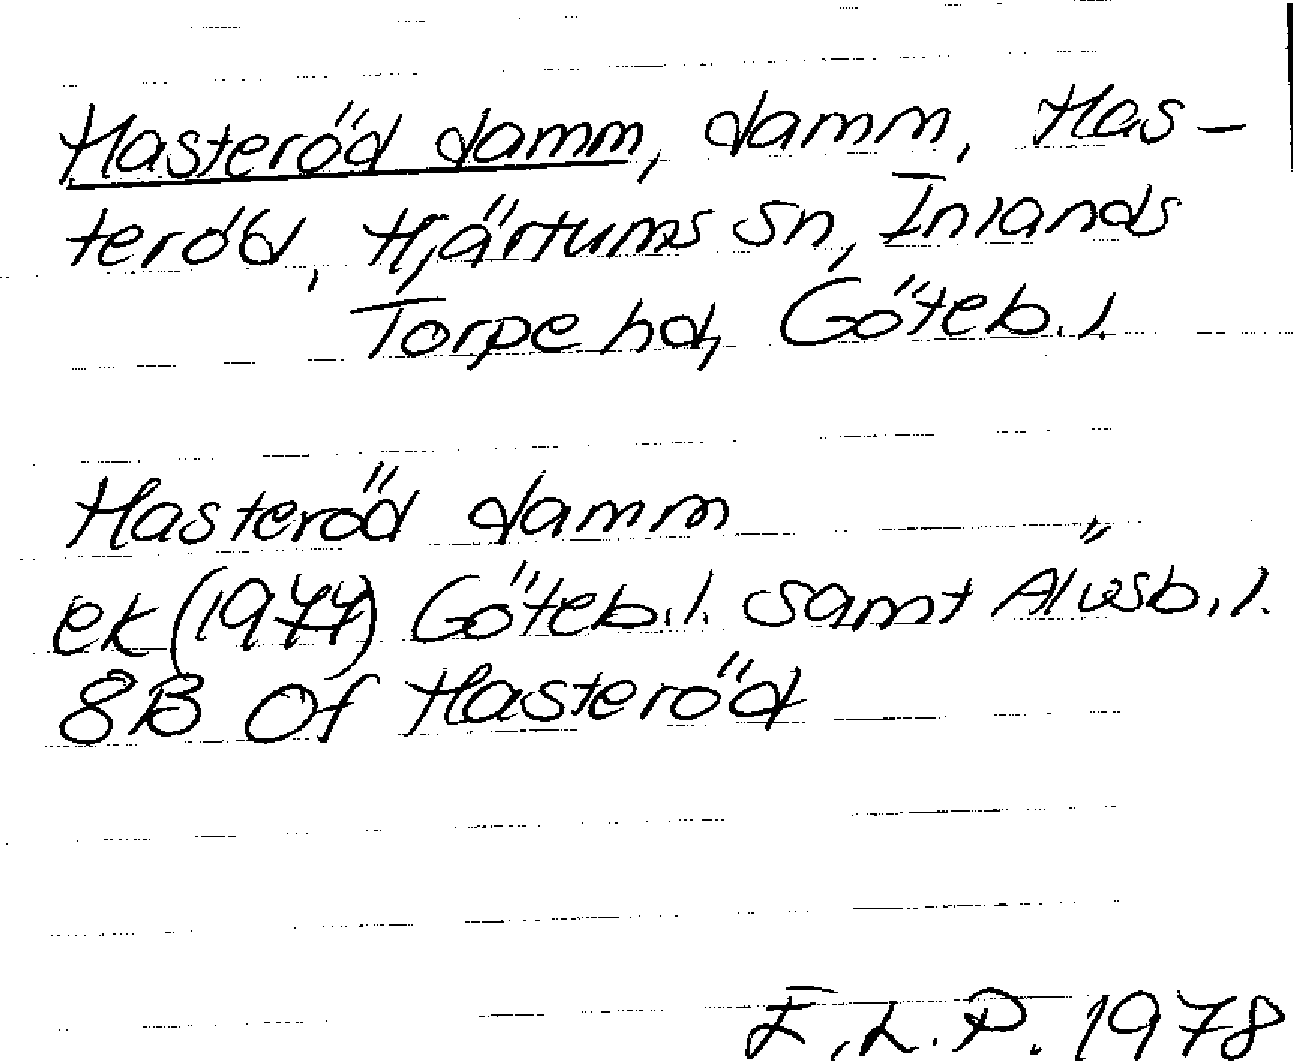 Hasteröd damm, damm, Has-
teröd, Hjärtums sn, Inlands
Torpe hd, Göteb. l.
Hasteröd damm
ek (1977) Göteb. l. samt Älvsb. l.
8B 0f Hasteröd
E.L.P. 1978